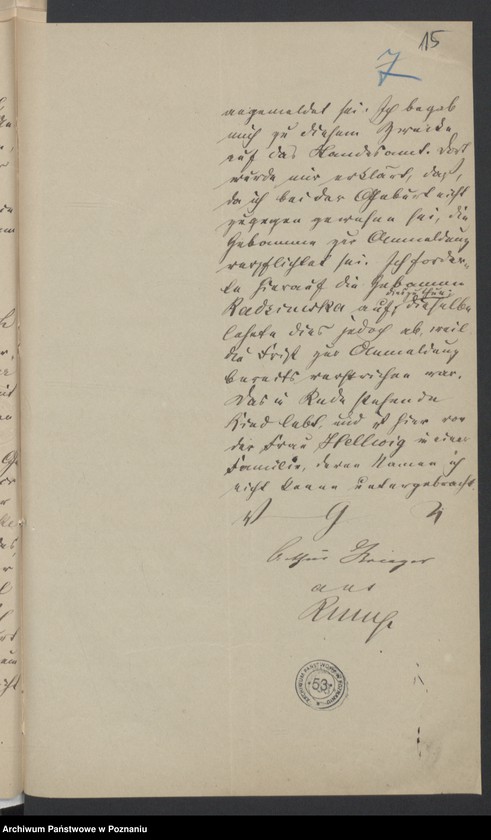 15
7
angemeldet sei. Ich begab
mich zu diesem Zwecke
auf das Standesamt. Dort
wurde mir erklärt, daß,
da ich bei der Geburt nicht
zugegen gewesen sei, die
Hebamme zur Anmeldung
verpflichtet sei. Ich forder-
te hierauf die Hebamme
Kaczinska auf, dies zu thun; dieselbe
lehnte dies jedoch ab, weil
die Frist zur Anmeldung
bereits verstrichen war.
Das in Rede stehende
Kind lebt, und ist hier von
der Frau Hellwig in einer
Familie, deren Namen ich
nicht kenne untergebracht.
V G U
Arthur Krieger
aus
ARCHIWUM PAŃSTWOWE W POZNANIU
53
Archiwum Państwowe w Poznaniu